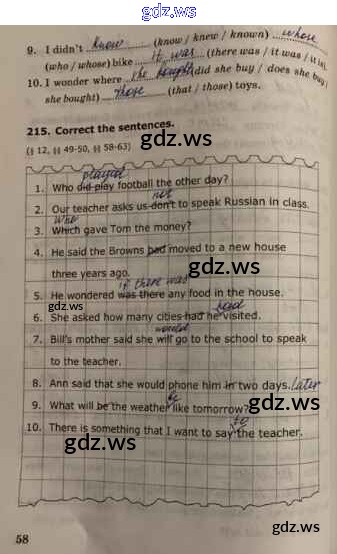 gdz.ws
9. I didn't know (know / knew / known) whose
(who / whose) bike it was (there was / it was / it is).
10. I wonder where she bought (did she buy / does she buy /
she bought) those (that / those) toys.
215. Correct the sentences.
(§ 12, §§ 49-50, §§ 58-63)
gdz.ws
played
1. Who did play football the other day?
not
2. Our teacher asks us don't to speak Russian in class.
who
3. Which gave Tom the money?
gdz.ws
4. He said the Browns had moved to a new house
three years ago.
gdz.ws
if there was
5. He wondered was there any food in the house.
gdz.ws
had
6. She asked how many cities had he visited.
would
7. Bill's mother said she will go to the school to speak
to the teacher.
8. Ann said that she would phone him in two days. later
be
9. What will be the weather like tomorrow?
gdz.ws
to
10. There is something that I want to say the teacher.
gdz.ws
gdz.ws
58
gdz.ws